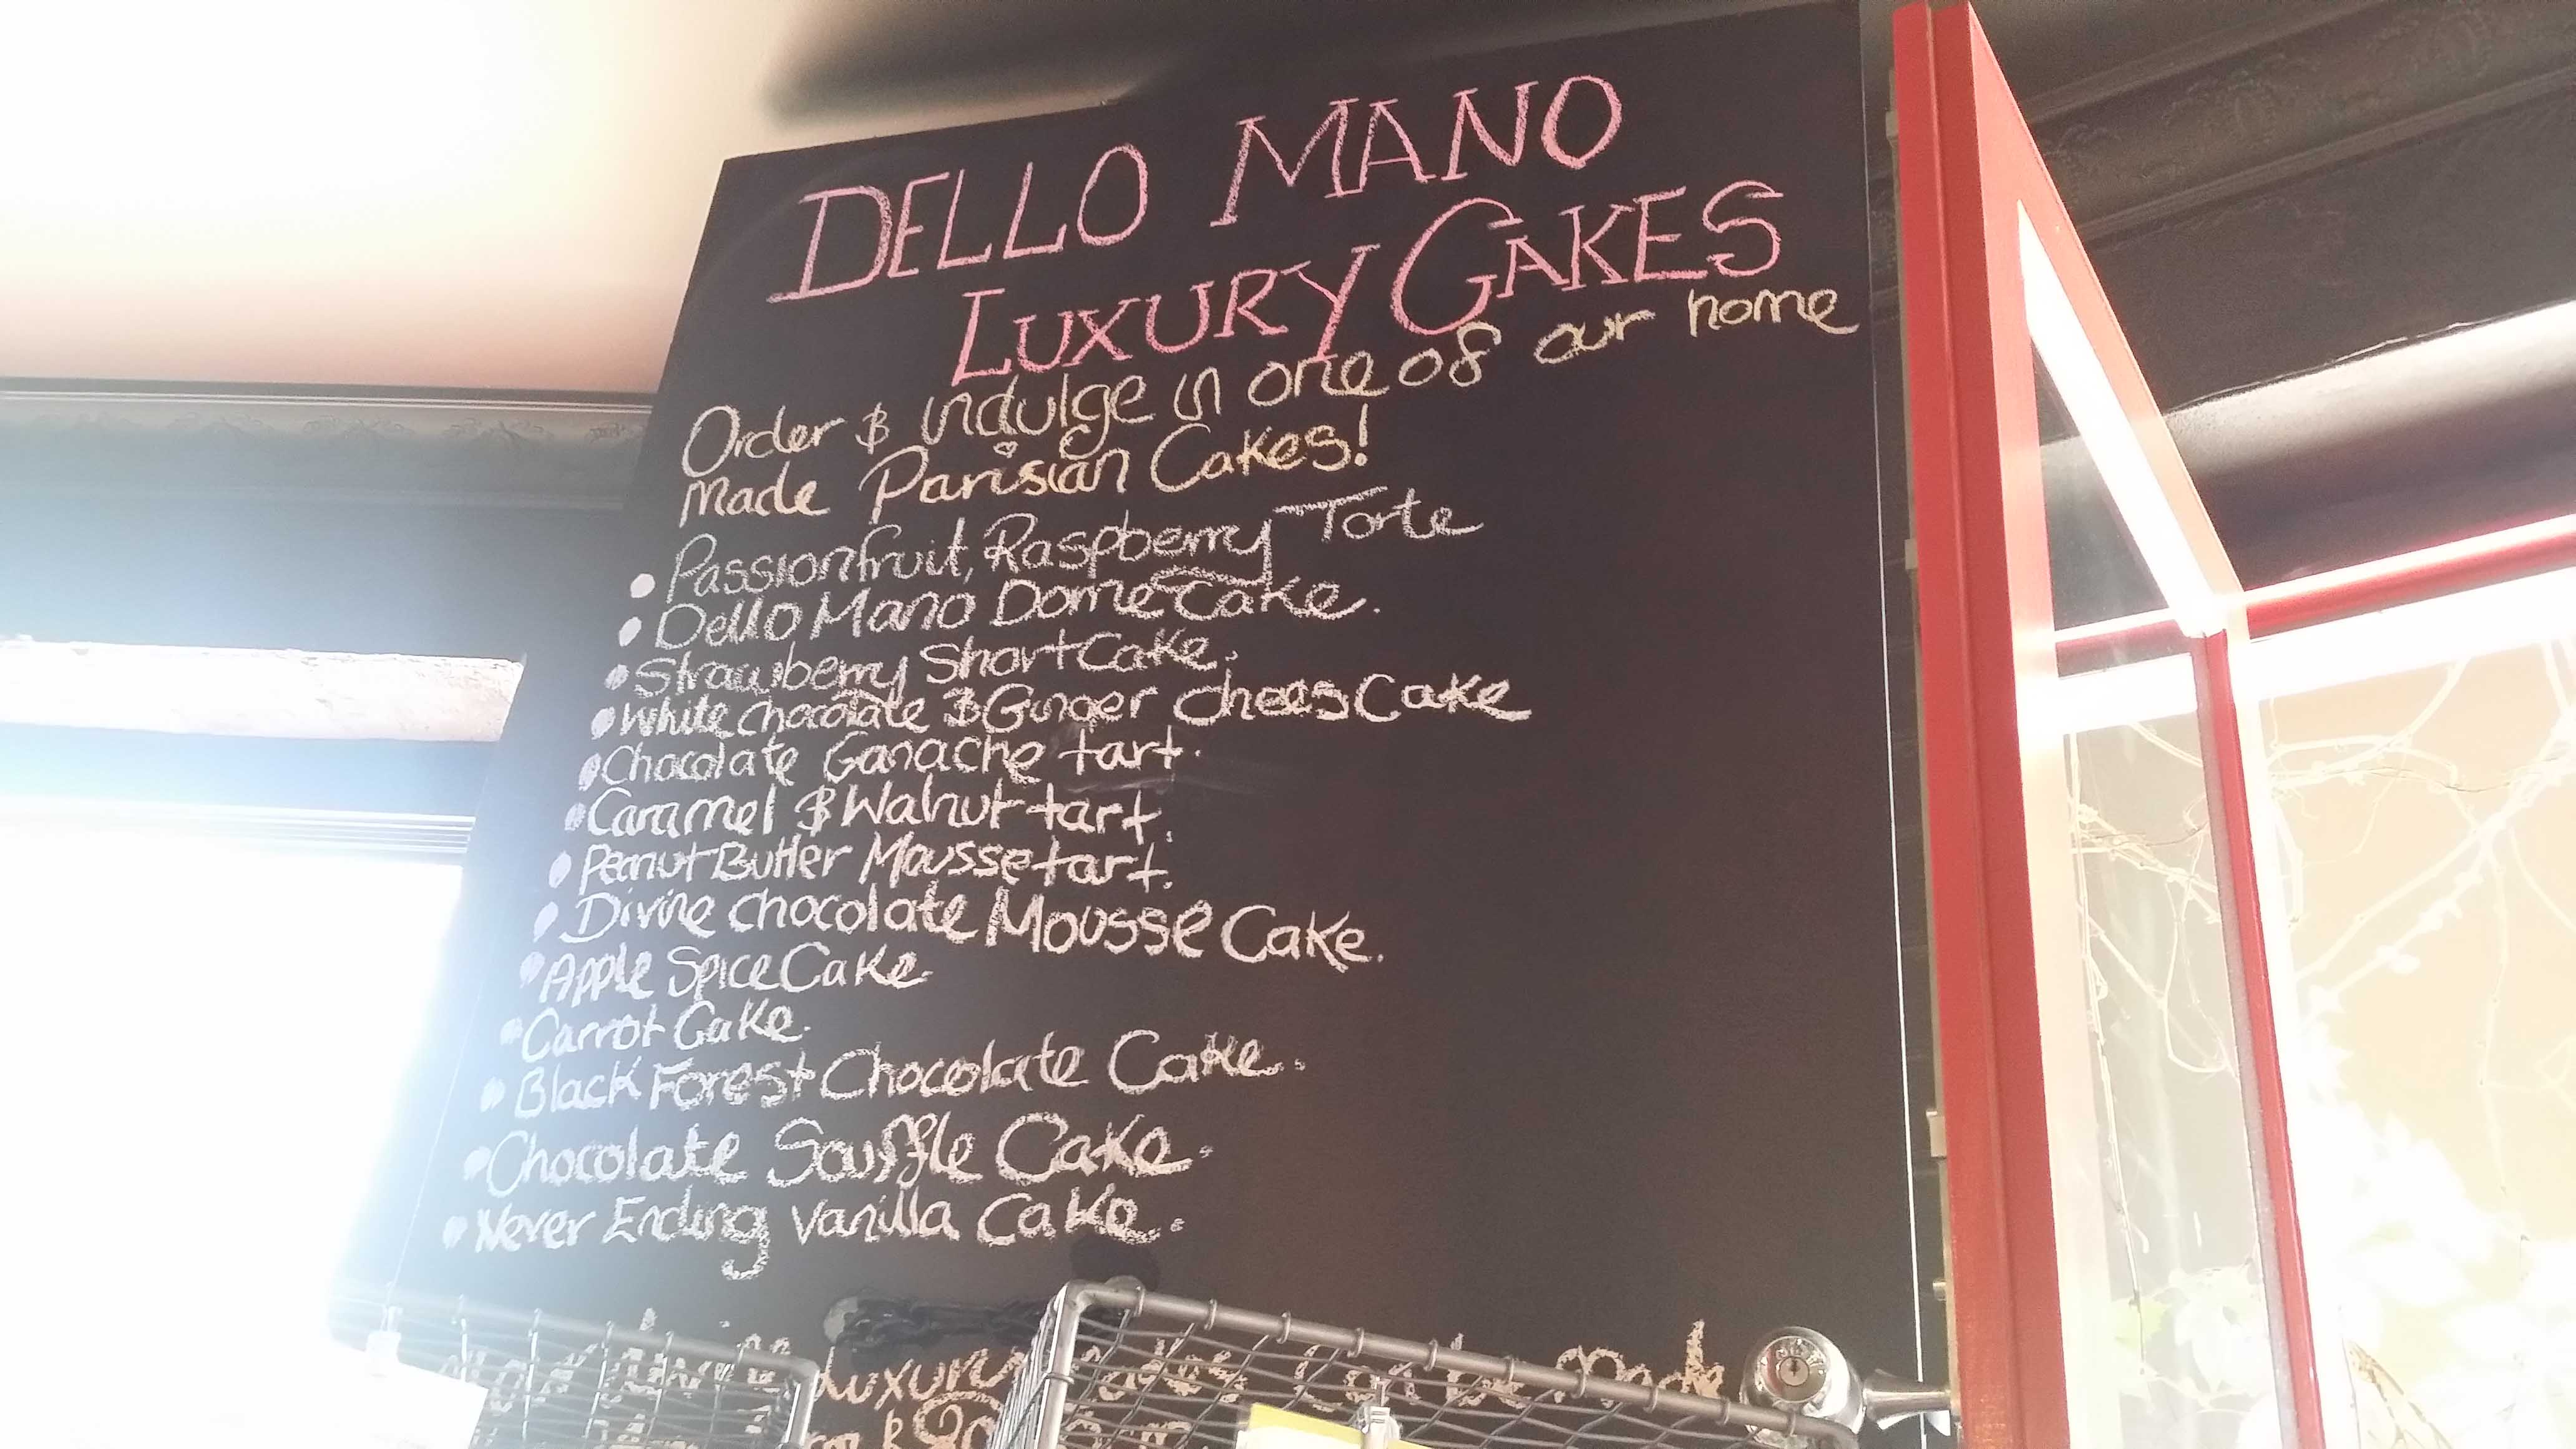 DELLO MANO
LUXURY CAKES
Order & indulge in one of our home
made Parisian Cakes!
• Passionfruit, Raspberry Torte
• Dello Mano Dome Cake.
• Strawberry Short Cake.
• White chocolate & Ginger chees Cake
• Chocolate Ganache tart.
• Caramel & Walnut tart.
• Peanut Butter Mousse tart.
• Divine chocolate Mousse Cake.
• Apple Spice Cake.
• Carrot Cake.
• Black Forest Chocolate Cake.
• Chocolate Souffle Cake.
• Never Ending vanilla Cake.
Luxury Can be Made